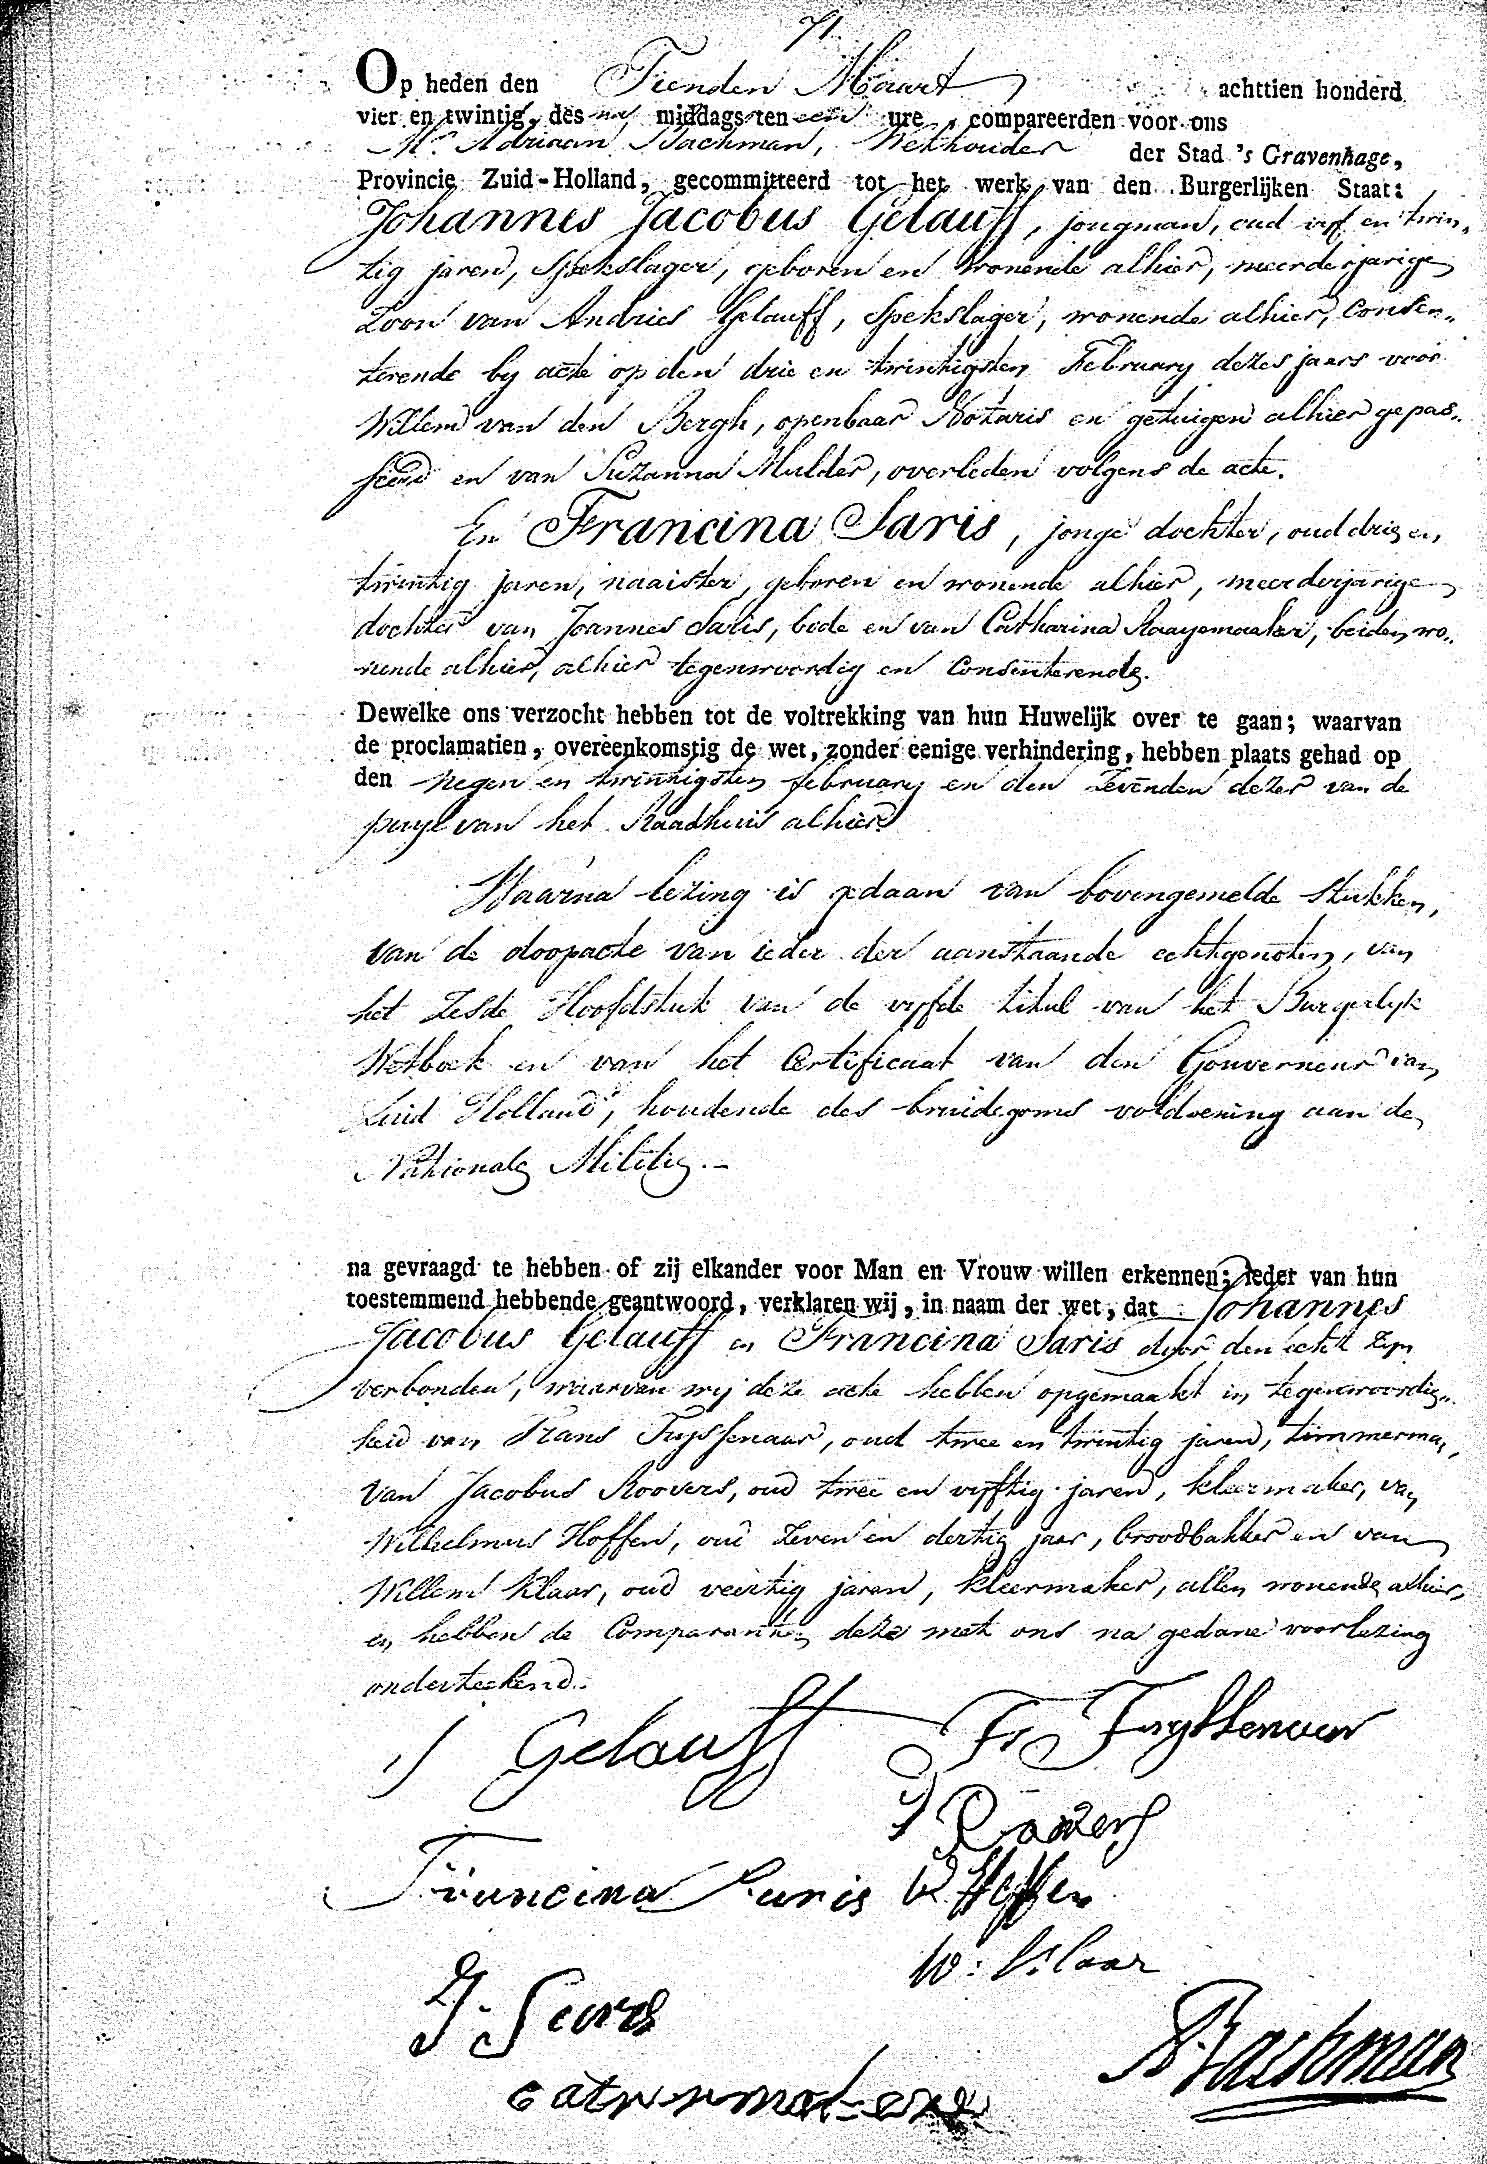 71.
Op heden den Tienden Maart achttien honderd
vier en twintig, des na middags ten een ure, compareerden voor ons
Mr. Adriaan Bachman, Wethouder der Stad 's Gravenhage,
Provincie Zuid-Holland, gecommitteerd tot het werk van den Burgerlijken Staat:
Johannes Jacobus Gelauff, jongman, oud vijf en twin-
tig jaren, Spekslager, geboren en wonende alhier, meerderjarige
Zoon van Andries Gelauff, Spekslager, wonende alhier, Consen-
terende by acte op den drie en twintigsten February dezes jaars voor
Willem van den Bergh, openbaar Notaris en getuigen alhier gepas-
seerd en van Suzanna Mulder, overleden volgens de acte.
En Francina Saris, jonge dochter, oud drie en
twintig jaren, naaister, geboren en wonende alhier, meerderjarige
dochter van Joannes Saris, bode en van Catharina Raaymaaker, beiden wo-
nende alhier, alhier tegenwoordig en Consenterende.
Dewelke ons verzocht hebben tot de voltrekking van hun Huwelijk over te gaan; waarvan
de proclamatien, overeenkomstig de wet, zonder eenige verhindering, hebben plaats gehad op
den negen en twintigsten february en den Zevenden dezer van de
puye van het Raadhuis alhier
Waarna lezing is gedaan van bovengemelde stukken,
van de doopacte van ieder der aanstaande echtgenoten, van
het Zesde Hoofdstuk van de vyfde titul van het Burgerlyk
Wetboek en van het Certificaat van den Gouverneur van
Zuid Holland, houdende des bruidegoms voldoening aan de
Nationale Militie.-
na gevraagd te hebben of zij elkander voor Man en Vrouw willen erkennen; ieder van hun
toestemmend hebbende geantwoord, verklaren wij, in naam der wet, dat Johannes
Jacobus Gelauff en Francina Saris door den echt zyn
verbonden, waarvan wij deze acte hebben opgemaakt in tegenwoordig-
heid van Frans Tuyssenaar, oud twee en twintig jaren, timmerman,
van Jacobus Roovers, oud twee en vyftig jaren, kleermaker, van
Wilhelmus Hoffen, oud Zeven en dertig jaar, broodbakker en van
Willem Klaar, oud veertig jaren, kleermaker, allen wonende alhier,
en hebben de Comparanten deze met ons na gedane voorlezing
onderteekend.
J Gelauff Fr Tuyssenaar
J Roovers
Francina Saris W Hoffen
W: Klaar
J. Saris
A. Bachman